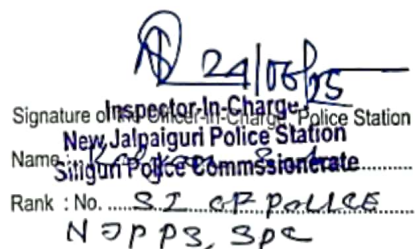 24/06/25
Signature of the Officer-in-Charge, Police Station
Inspector-In-Charge
New Jalpaiguri Police Station
Name :
Siliguri Police Commssionerate
Rank : No. SI OF POLICE
NJPPS, SPC